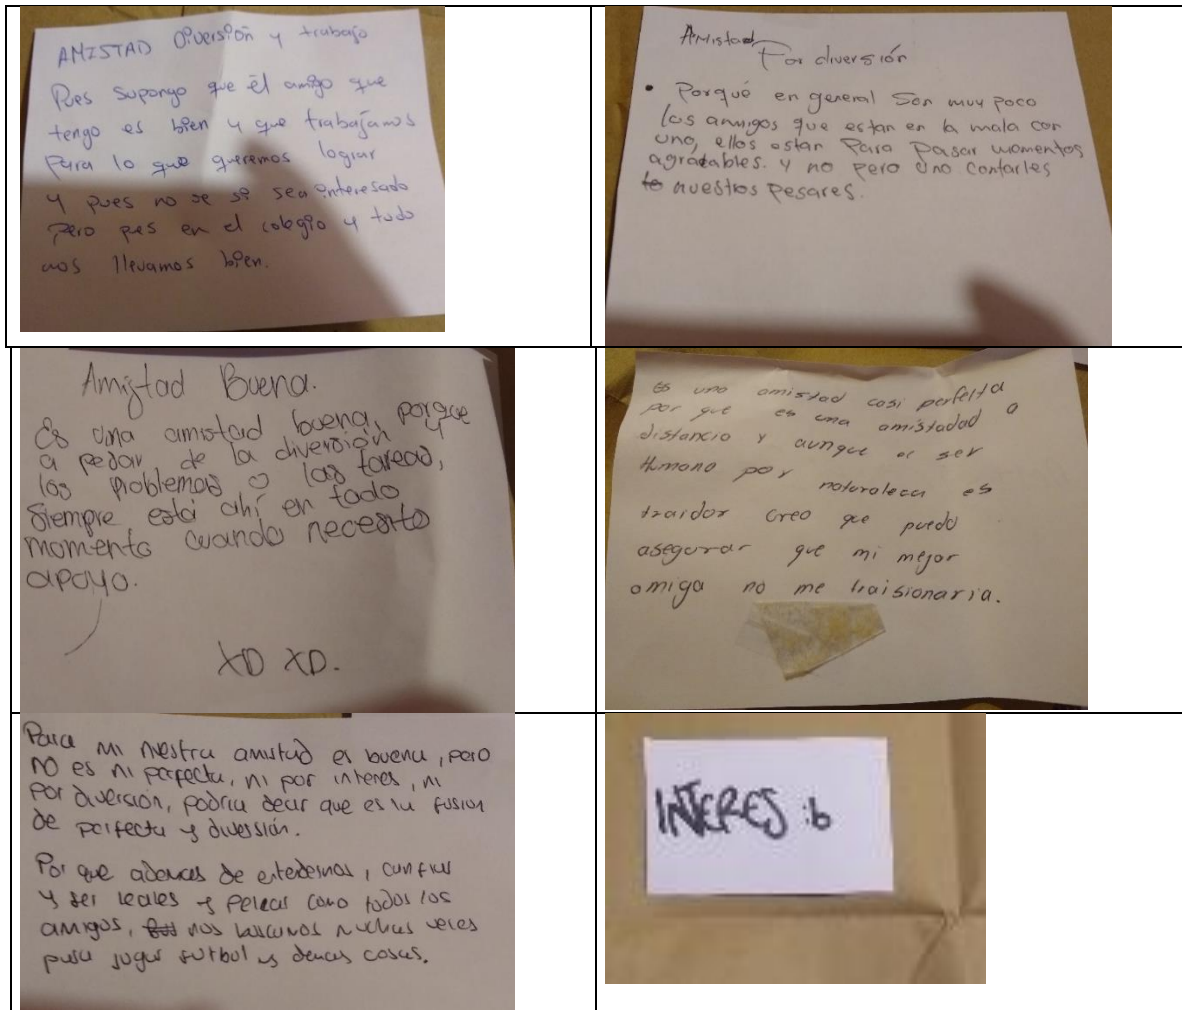 AMISTAD Diversión y trabajo
Pues supongo que él amigo que
tengo es bien y que trabajamos
para lo que queremos lograr
y pues no se si sea interesado
pero pues en el colegio y todo
nos llevamos bien.
Amistad
Por diversión
• Porqué en general son muy poco
los amigos que estan en la mala con
uno, ellos estan para pasar momentos
agradables. y no pero uno contarles
nuestros pesares.
Amistad Buena.
Es una amistad buena, porque
a pesar de la diversión y
los problemas o las tareas,
Siempre está ahí en todo
momento cuando necesito
apoyo.
XD XD.
Es una amistad casi perfecta
por que es una amistadad a
distancia y aunque el ser
Humano por naturaleza es
traidor creo que puedo
asegurar que mi mejor
amiga no me traisionaria.
Para mi nuestra amistad es buena, pero
no es ni perfecta, ni por interes, ni
por diversión, podria decir que es la fusion
de perfecta y diversión.
Por que ademas de entedernos, confiar
y ser leales y pelear como todos los
amigos, nos buscamos muchas veces
para jugar futbol y demas cosas.
INTERES :b